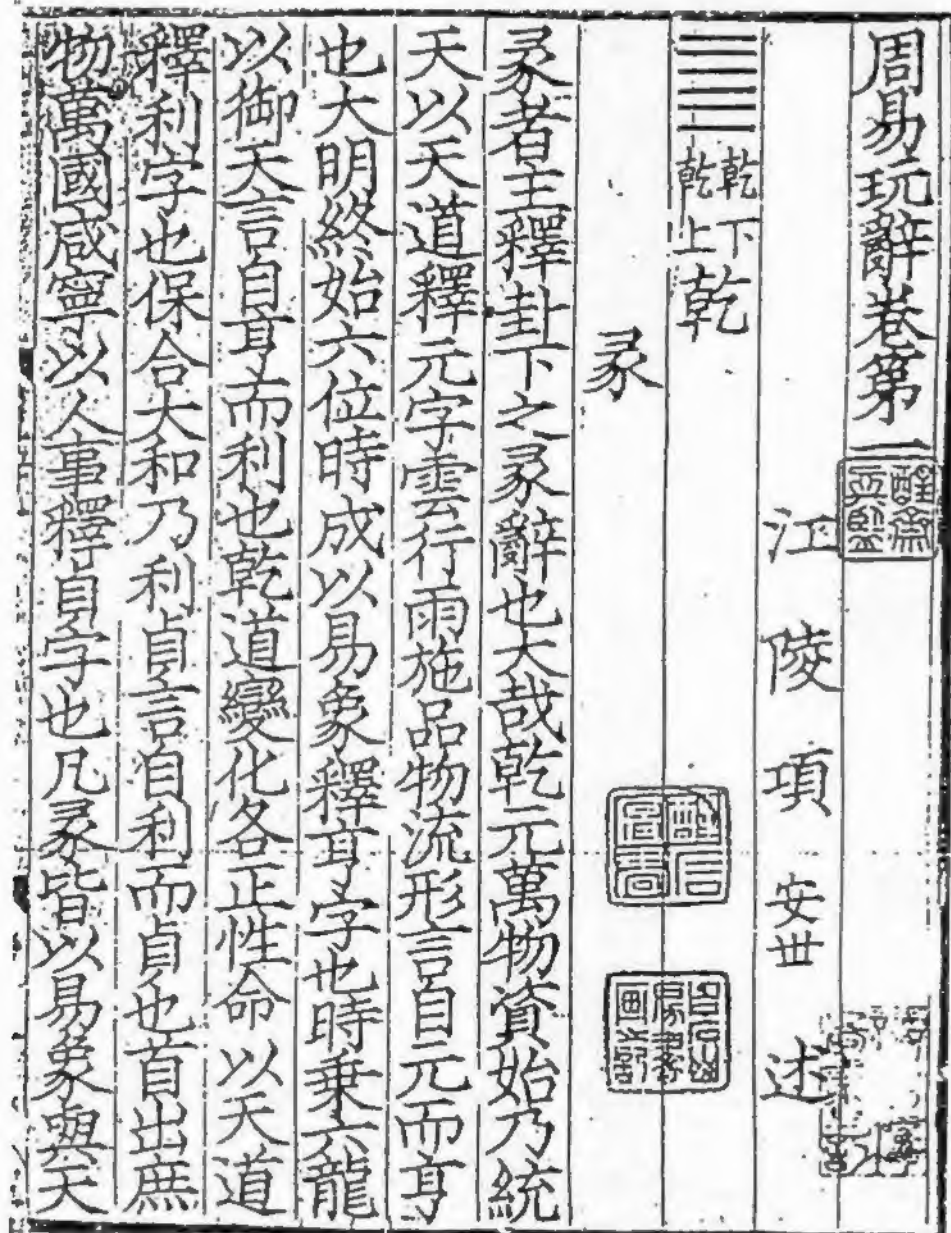 周易玩辭卷第一
江陵項安世述
䷀乾下乾上乾
彖
彖者主釋卦下之彖辭也大哉乾元萬物資始乃統
天以天道釋元字雲行雨施品物流形言自元而亨
也大明終始六位時成以易象釋亨字也時乗六龍
以御天言自亨而利也乾道變化各正性命以天道
釋利字也保合大和乃利貞言自利而貞也首出庶
物萬國咸寧以人事釋貞字也凡彖皆以易象與天